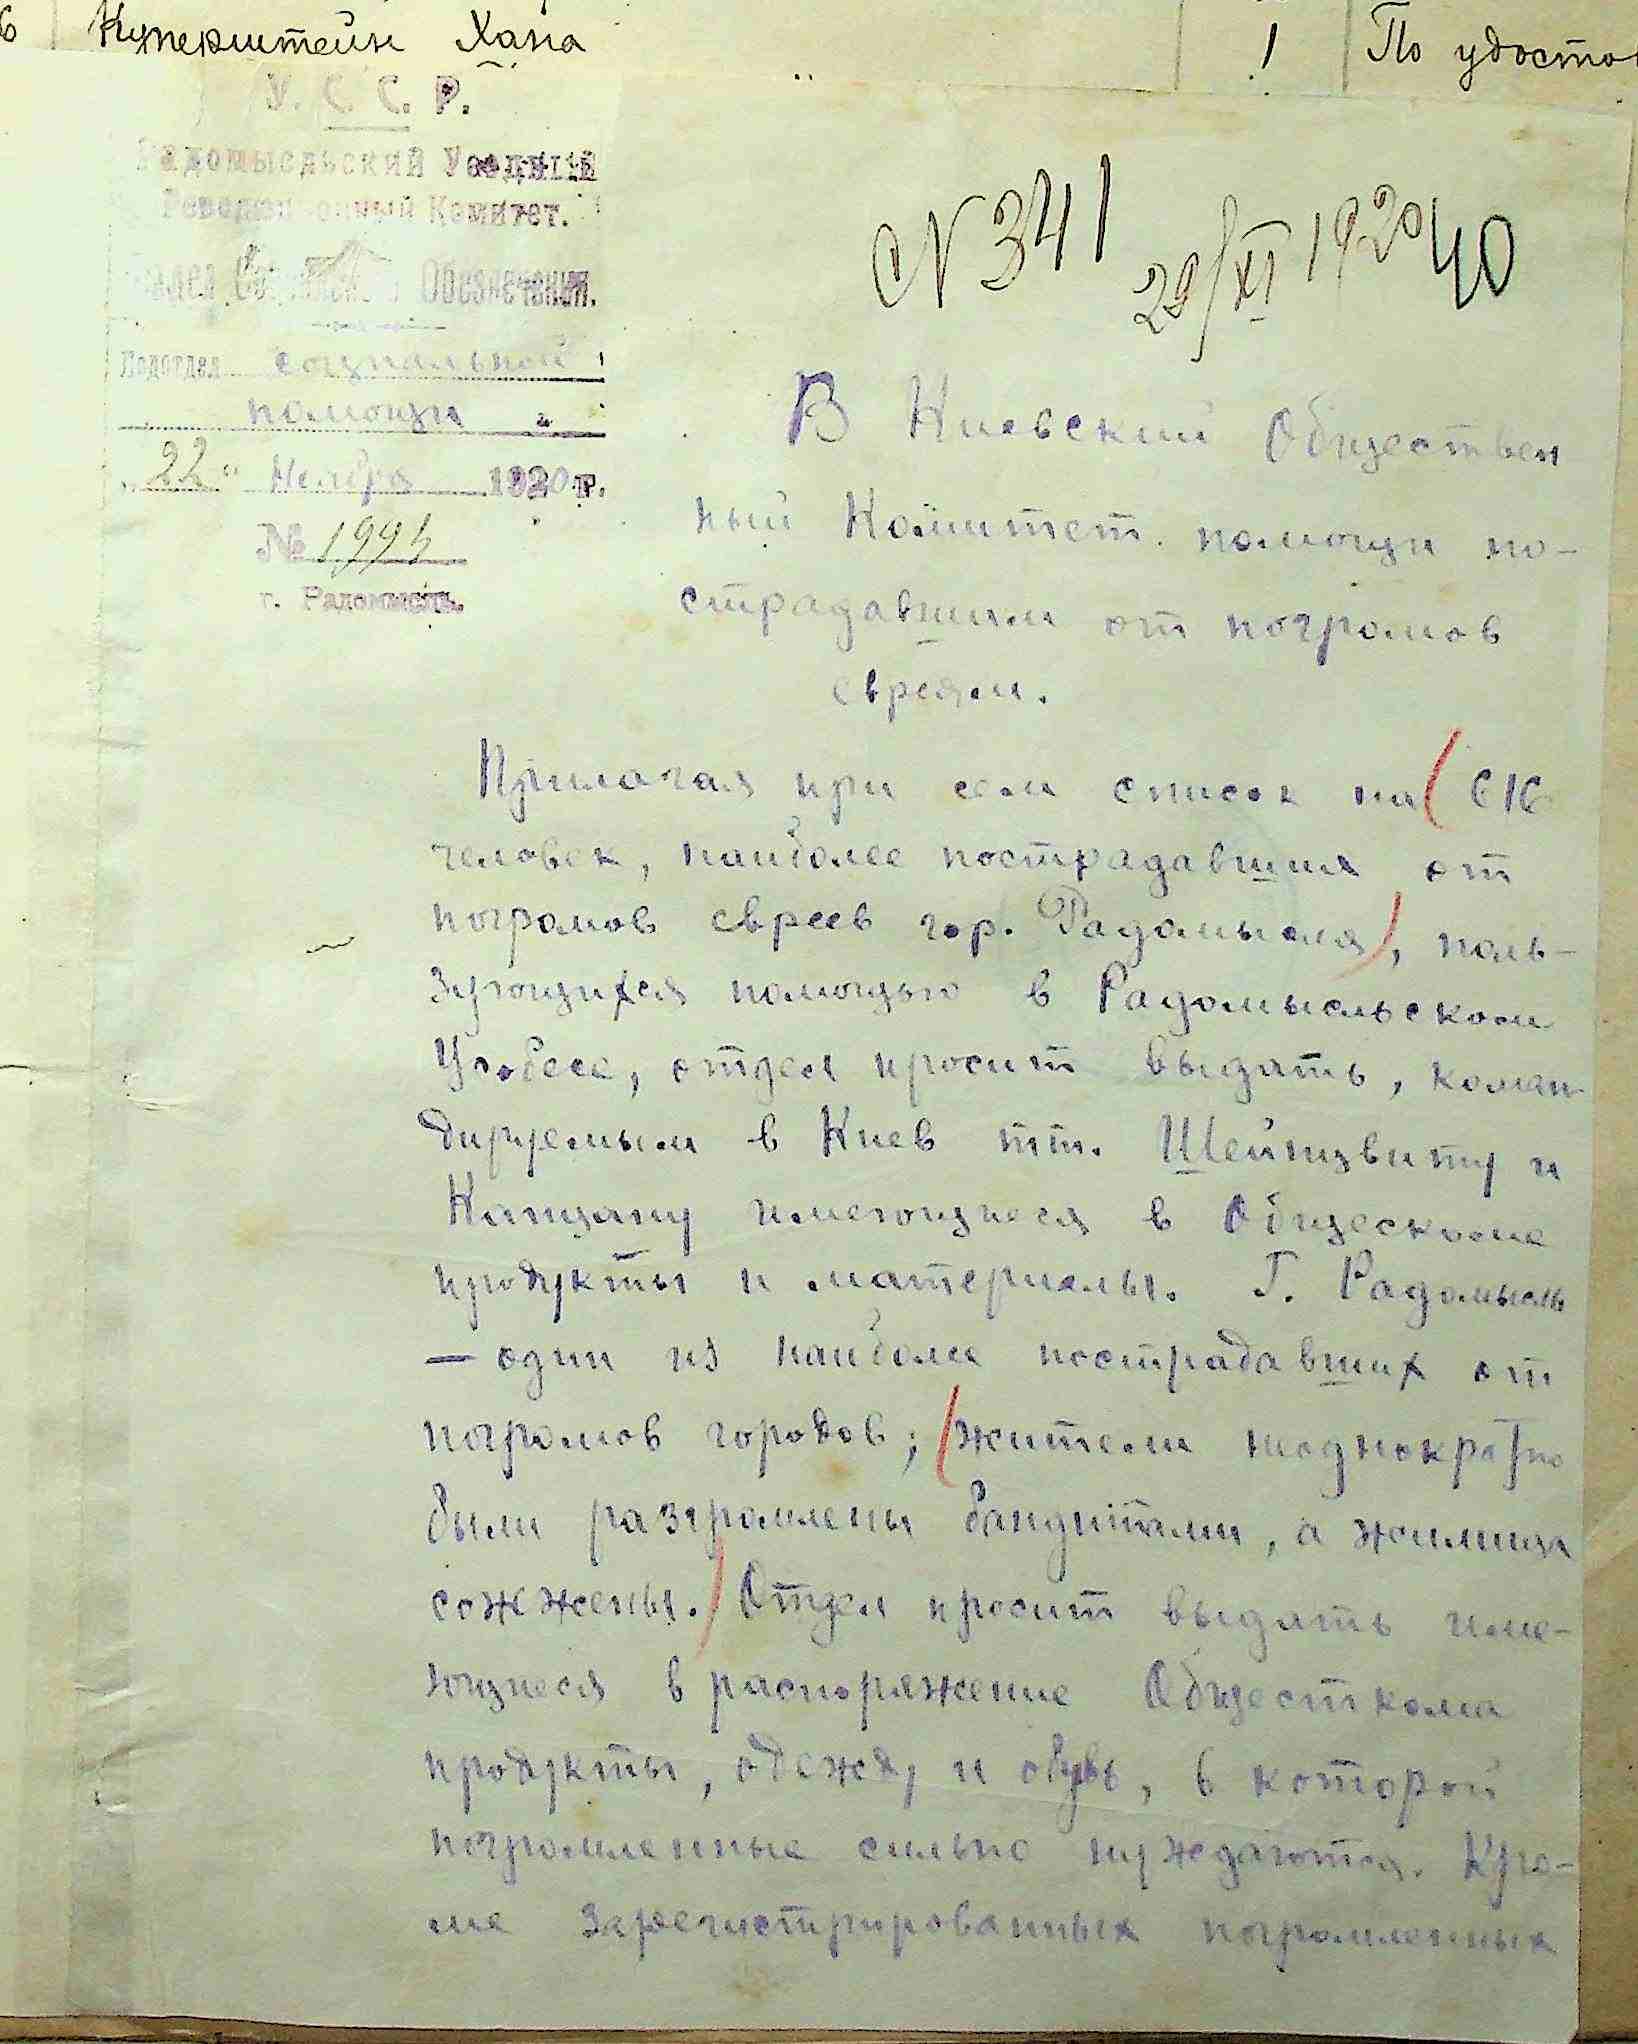 Куперштейн Хана
1
По удосто
У. С. С. Р.
Радомысльский Уездный
Революционный Комитет.
Отдел Социального Обезпечения.
Подотдел социальной
помощи
"22" Ноября 1920 г.
№ 1994
г. Радомысль.
N 341
29/XI 1920
40
В Киевский Обществен
ный Комитет помощи по-
страдавшим от погромов
евреям.
Прилагая при сем список на 616
человек, наиболее пострадавших от
погромов евреев гор. Радомысля, поль-
зующихся помощью в Радомысльском
Усобесе, отдел просит выдать, коман-
дируемым в Киев тт. Шейнцвиту и
Кацману имеющиеся в Общескоме
продукты и материалы. Г. Радомысль
— один из наиболее пострадавших от
погромов городов; жители неоднократно
были разгромлены бандитами, а жилища
сожжены. Отдел просит выдать име-
ющиеся в распоряжение Общесткома
продукты, одежду и обувь, в которой
погромленные сильно нуждаются. Кро-
ме зарегистрированных погромленных